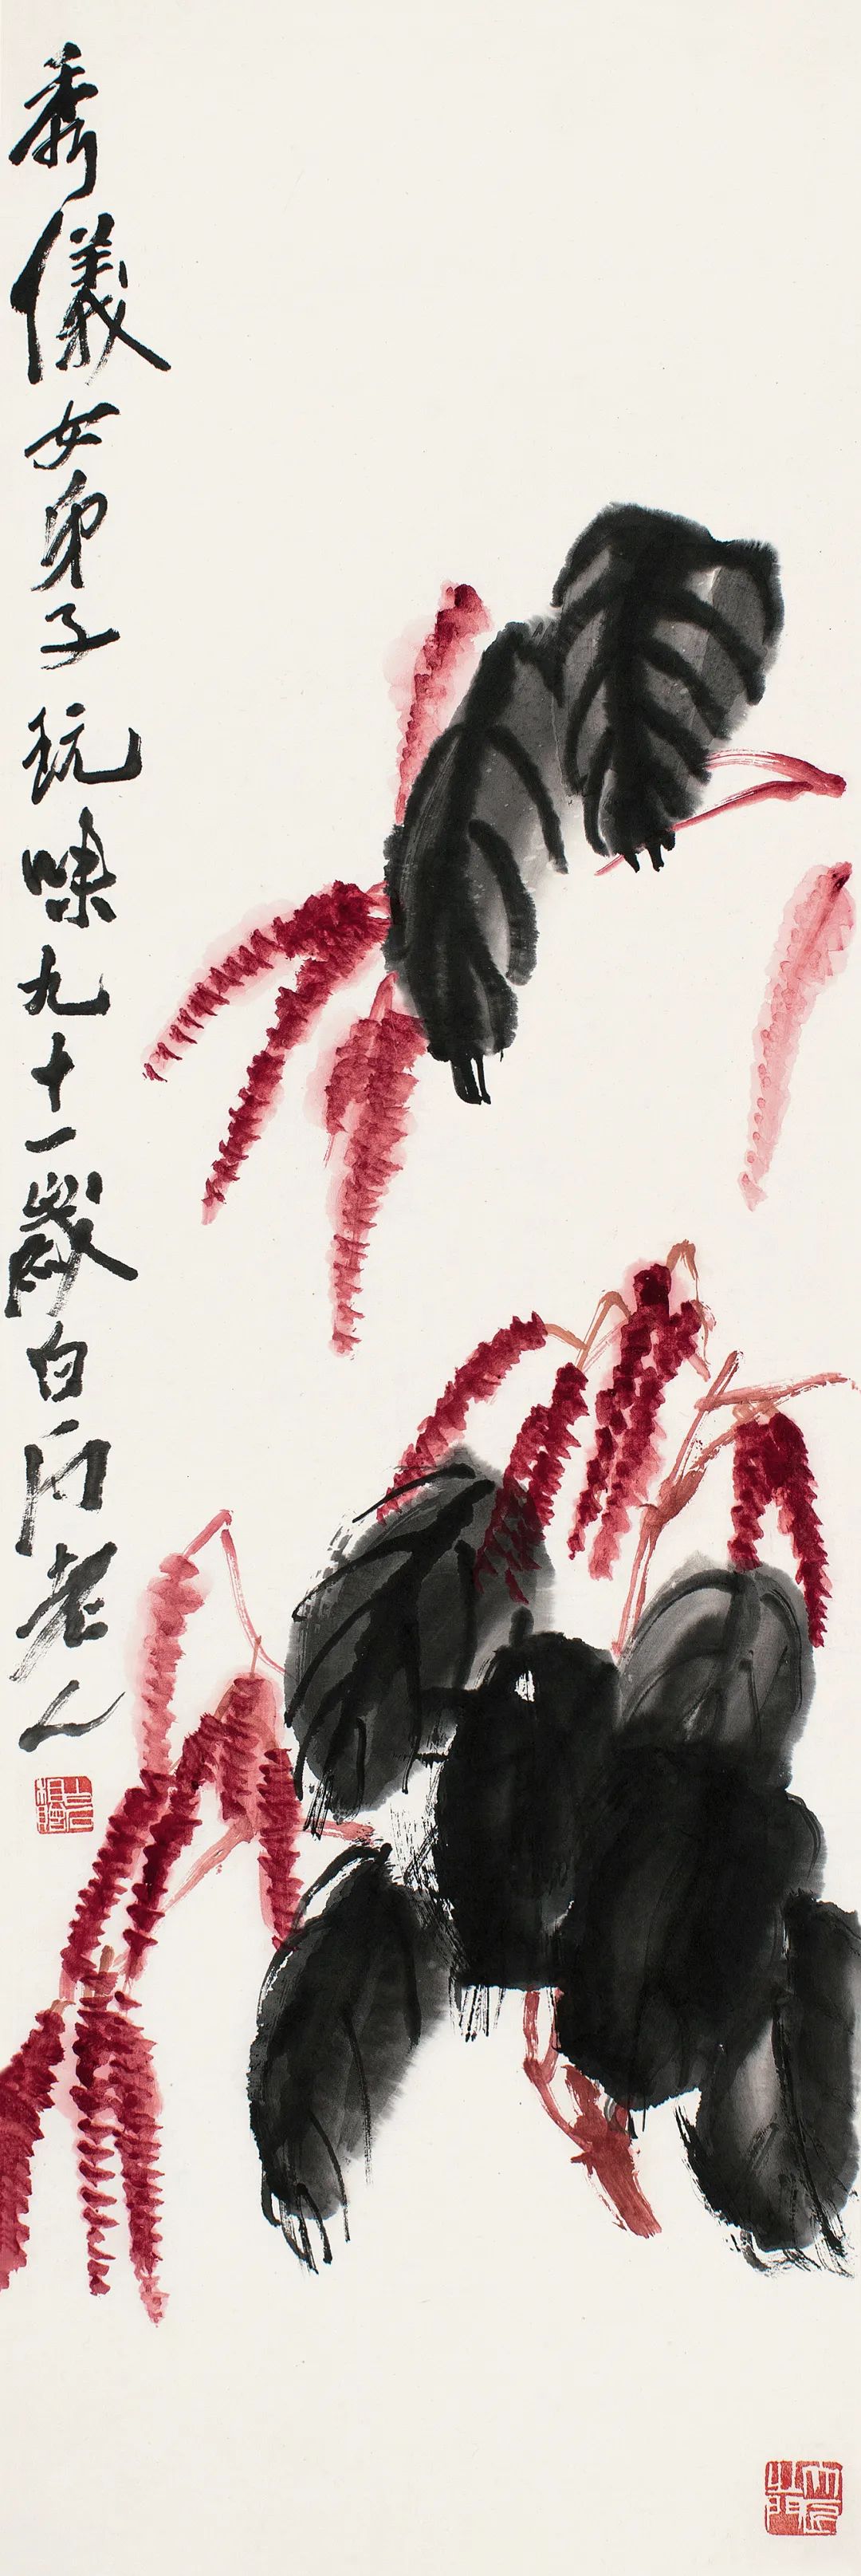 秀儀女弟子玩味九十一歲白石老人